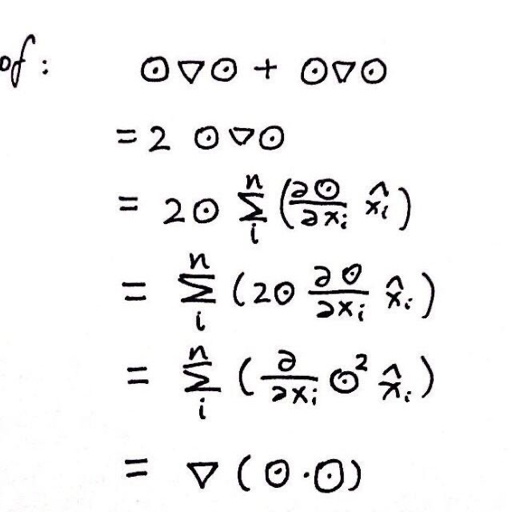 of: ⊙∇⊙ + ⊙∇⊙
= 2 ⊙∇⊙
= 2⊙ ∑ᵢⁿ (∂⊙/∂xᵢ x̂ᵢ)
= ∑ᵢⁿ (2⊙ ∂⊙/∂xᵢ x̂ᵢ)
= ∑ᵢⁿ (∂/∂xᵢ ⊙² x̂ᵢ)
= ∇(⊙·⊙)